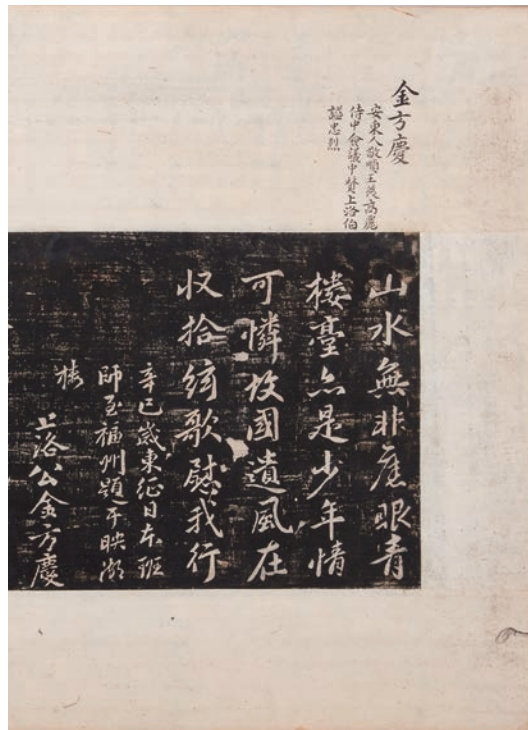 金方慶
安東人敬順王後高麗
侍中僉議中贊上洛伯
諡忠烈
山水無非舊眼青
樓臺亦是少年情
可憐故國遺風在
収拾絃歌慰我行
辛巳歲東征日本班
師至福州題于映湖
樓
上洛公金方慶